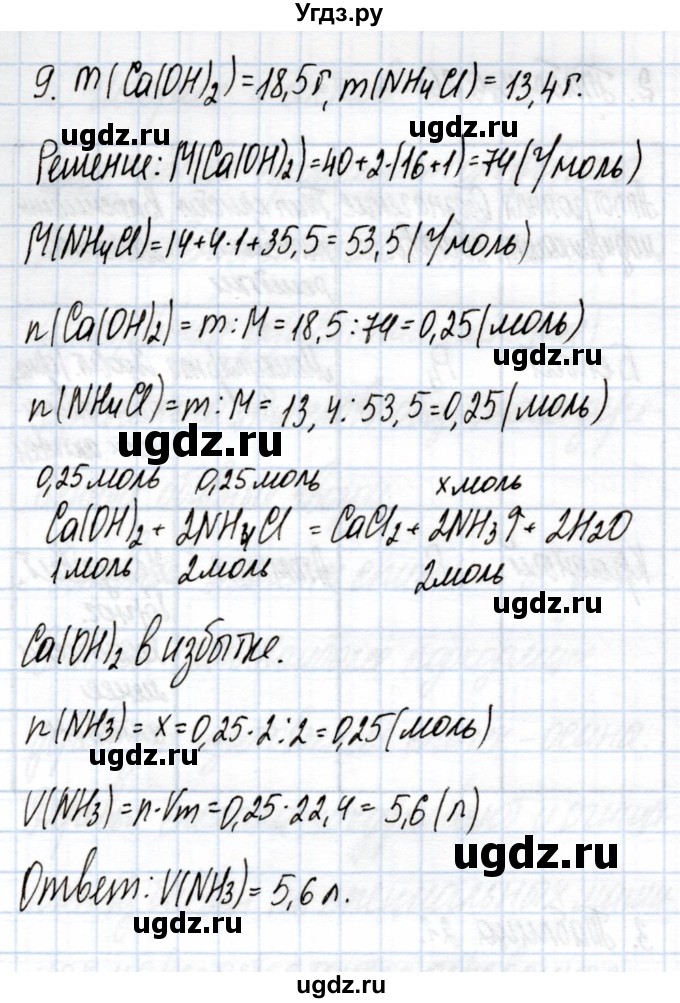 Угдз.ру
9. m(Ca(OH)₂)=18,5г, m(NH₄Cl)=13,4г.
ugdz.ru ugdz.ru
Решение: M(Ca(OH)₂)=40+2·(16+1)=74(г/моль)
M(NH₄Cl)=14+4·1+35,5=53,5(г/моль)
ugdz.ru
n(Ca(OH)₂)=m:M=18,5:74=0,25(моль)
ugdz.ru
n(NH₄Cl)=m:M=13,4:53,5=0,25(моль)
ugdz.ru
0,25моль 0,25моль xмоль
Ca(OH)₂+2NH₄Cl=CaCl₂+2NH₃↑+2H₂O
1моль 2моль 2моль
ugdz.ru
Ca(OH)₂ в избытке.
n(NH₃)=x=0,25·2:2=0,25(моль)
ugdz.ru
V(NH₃)=n·Vm=0,25·22,4=5,6(л)
ugdz.ru
Ответ: V(NH₃)=5,6л.
ugdz.ru
Угдз.ру